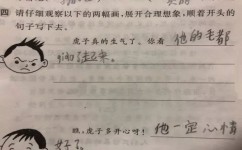 四 请仔细观察以下的两幅画,展开合理想象,顺着开头的
句子写下去。
虎子真的生气了。你看 他的毛都
起来。
瞧,虎子多开心呀! 他一定心情
好了